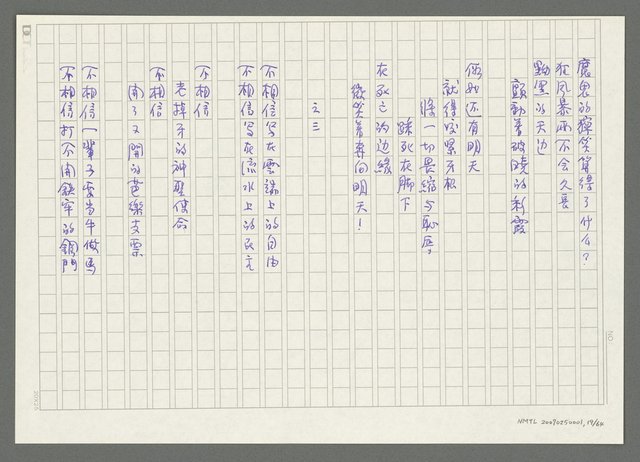 魔鬼的獰笑算得了什么?
狂风暴雨不会久長
黝黑的天边
顫動着破曉的彩霞
假如还有明天
就得咬緊牙根
將一切畏縮与恥辱,
踩死在脚下
在死亡的边緣
微笑着奔向明天!
之三
不相信写在雲端上的自由
不相信写在流水上的民主
不相信
老掉牙的神聖使命
不相信
開了又開的芭樂支票
不相信一輩子要当牛做馬
不相信打不開鎖牢的鐵門
NO.
20X25
NMTL 20090250001,19/64